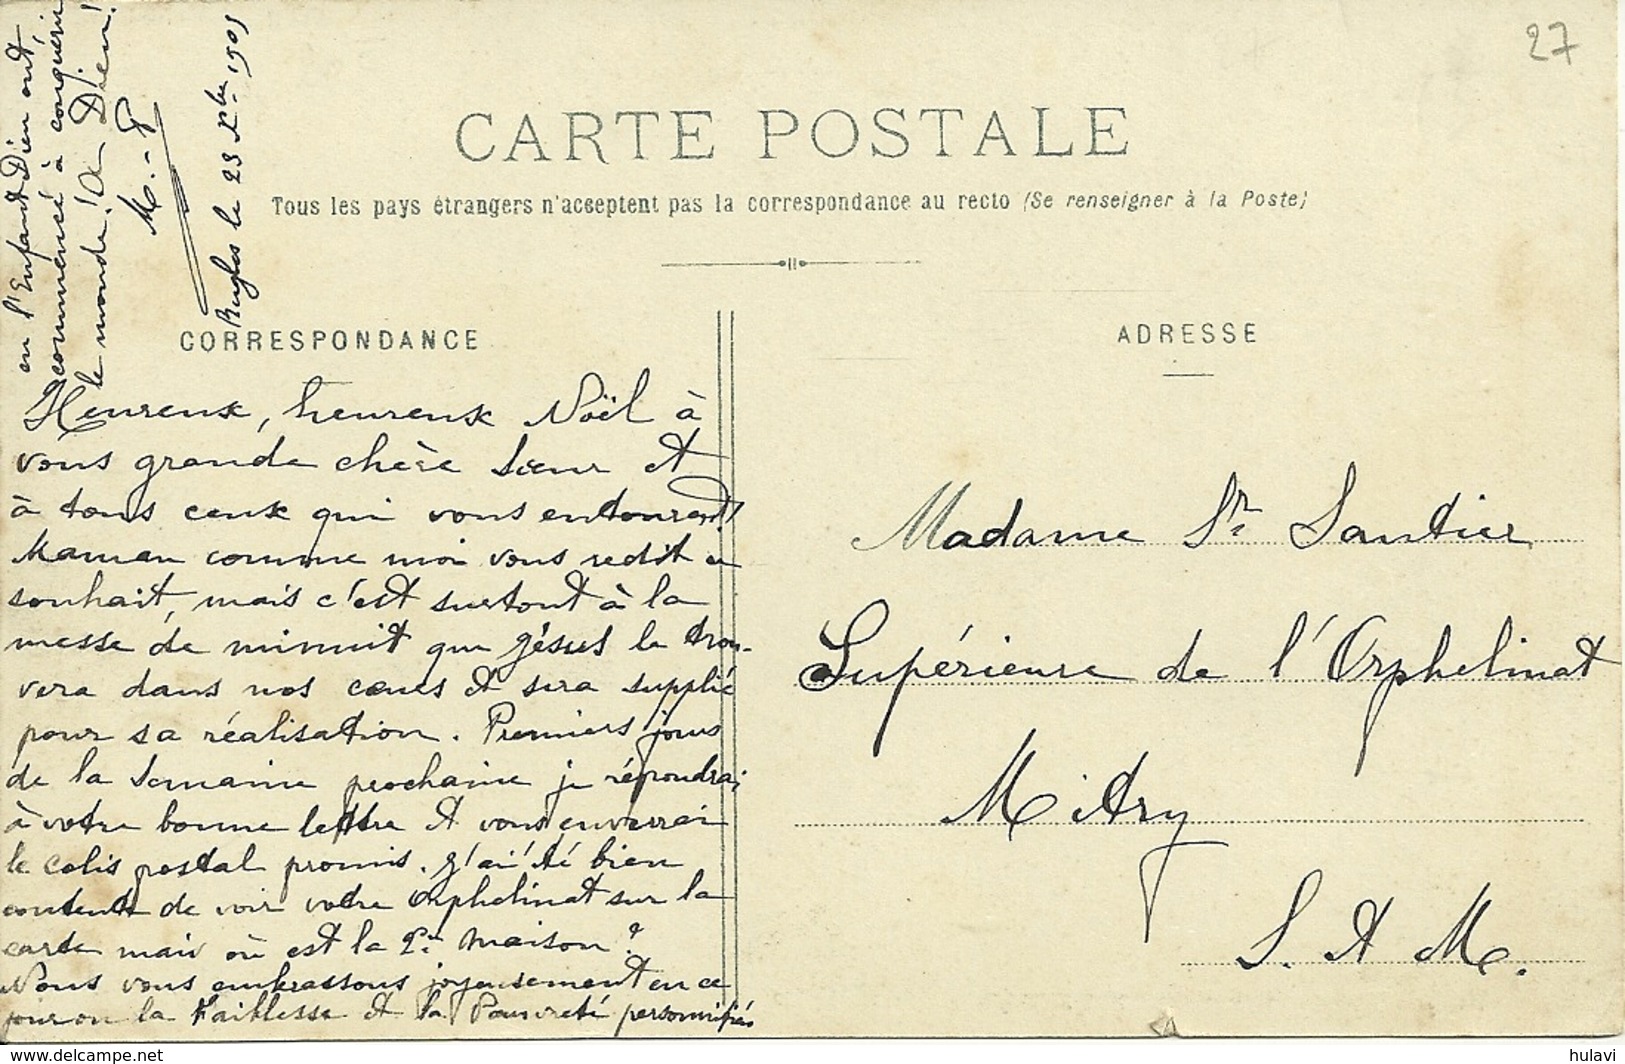 27
CARTE POSTALE
Tous les pays étrangers n'acceptent pas la correspondance au recto (Se renseigner à la Poste)
CORRESPONDANCE
ADRESSE
Rugles le 23 Xbre 1905
Heureux, heureux Noël à
vous grande chère Sœur et
à tous ceux qui vous entourent!
Maman comme moi vous redit ce
souhait, mais c'est surtout à la
messe de minuit que Jésus le trou-
vera dans nos cœurs et sera supplié
pour sa réalisation. Premiers jours
de la semaine prochaine je répondrai
à votre bonne lettre et vous enverrai
le colis postal promis. J'ai été bien
contente de voir votre Orphelinat sur la
carte mais où est la Pte maison?
Nous vous embrassons joyeusement en ce
jour où la Faiblesse et la Pauvreté personnifiés
en l'Enfant Dieu ont,
commencé à conquérir
le monde! A Dieu!
M.-
Madame Sr Santier
Supérieure de l'Orphelinat
Mitry
S. et M.
hulavi